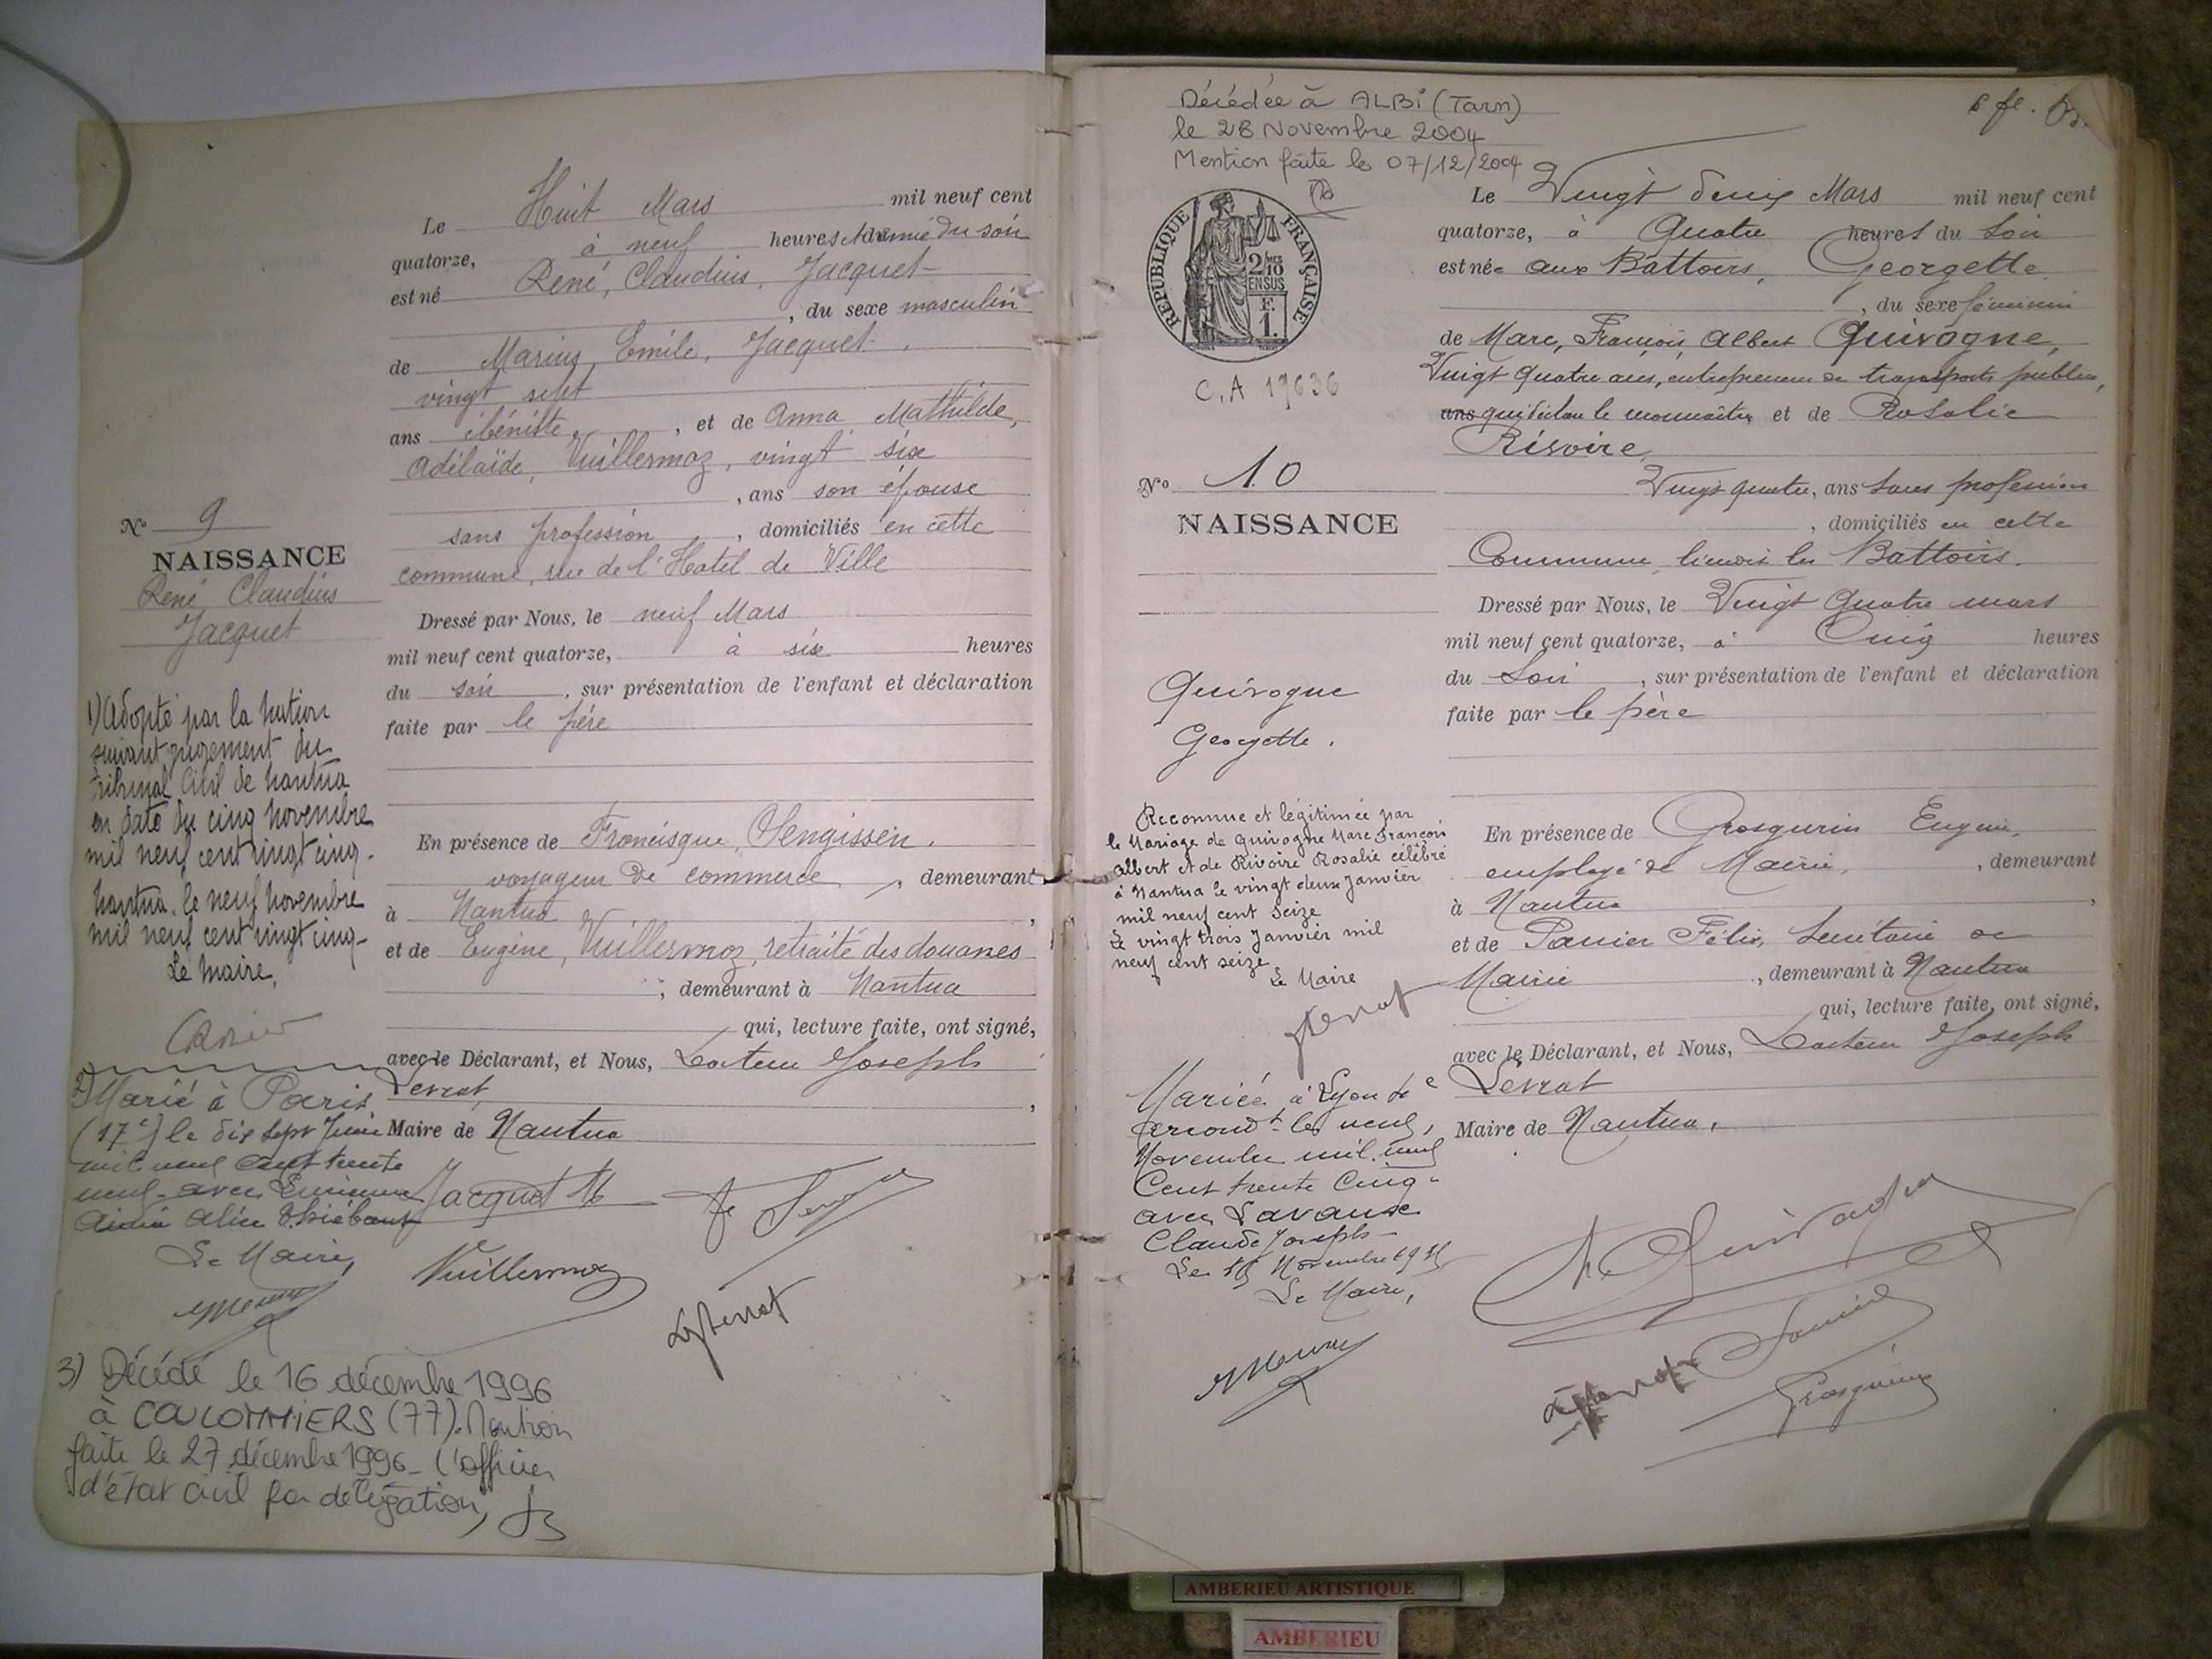 Le Huit Mars mil neuf cent
quatorze, à neuf heures et demie du soir
est né René, Claudius, Jacquet
, du sexe masculin
de Marius, Emile, Jacquet
vingt sept
ans ébéniste, et de Anna Mathilde,
Adélaïde, Vuillermoz, vingt six
, ans son épouse
sans profession, domiciliés en cette
commune, rue de l'Hotel de Ville
Dressé par Nous, le neuf Mars
mil neuf cent quatorze, à six heures
du soir, sur présentation de l'enfant et déclaration
faite par le père
En présence de Francisque
voyageur de commerce, demeurant
à Nantua,
et de Eugène, Vuillermoz, retraité des douanes
, demeurant à Nantua
qui, lecture faite, ont signé,
avec le Déclarant, et Nous, Docteur Joseph
Levrat,
Maire de Nantua
Jacquet M
Vuillermoz
Levrat
No 9
NAISSANCE
René Claudius
Jacquet
1) Adopté par la nation
suivant jugement du
tribunal civil de Nantua
en date du cinq novembre
mil neuf cent vingt cinq.
Nantua, le neuf novembre
mil neuf cent vingt cinq
Le Maire,
2) Marié à Paris
(17e) le dix sept Juin
mil neuf cent trente
neuf avec
Alice Thiébaut
Le Maire,
3) Décédé le 16 décembre 1996
à COULOMMIERS (77). Mention
faite le 27 décembre 1996 - l'officier
d'état civil par délégation,
Décédée à ALBI (Tarn)
le 28 Novembre 2004
Mention faite le 07/12/2004
RÉPUBLIQUE FRANÇAISE
2/10 MES
EN SUS
F.
1.
C.A 17636
No 10
NAISSANCE
Quivogne
Georgette.
Reconnue et légitimée par
le Mariage de Quivogne Marc François
Albert et de Rivoire Rosalie célébré
à Nantua le vingt deux Janvier
mil neuf cent seize
Le vingt trois Janvier mil
neuf cent seize
Le Maire
Levrat
Mariée à Lyon 6e
arrondt le neuf
Novembre mil neuf
Cent trente Cinq
avec Lavause
Claude Joseph
Le Novembre 1935
Le Maire,
Le Vingt deux Mars mil neuf cent
quatorze, à Quatre heures du soir
est née aux Battoirs, Georgette
, du sexe féminin
de Marc, François, Albert Quivogne,
Vingt quatre ans, entrepreneur de transports publics,
ans qui déclare le reconnaître et de Rosalie
Rivoire,
Vingt quatre, ans sans profession
, domiciliés en cette
Commune, lieudit les Battoirs.
Dressé par Nous, le Vingt quatre mars
mil neuf cent quatorze, à Cinq heures
du Soir, sur présentation de l'enfant et déclaration
faite par le père
En présence de Grosgurin Eugène,
employé de Mairie, demeurant
à Nantua,
et de Panier Félix, Secrétaire de
Mairie, demeurant à Nantua
qui, lecture faite, ont signé,
avec le Déclarant, et Nous, Docteur Joseph
Levrat
Maire de Nantua.
Quivogne
Levrat
Grosgurin
AMBERIEU ARTISTIQUE
AMBERIEU